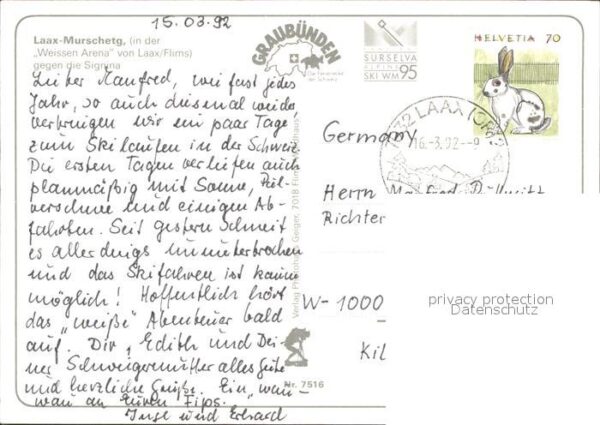 15.03.92
Laax-Murschetg, (in der
„Weissen Arena" von Laax/Flims)
gegen die Signina
Lieber Manfred, wie fast jedes
Jahr, so auch diesmal wieder,
verbringen wir ein paar Tage
zum Skilaufen in der Schweiz.
Die ersten Tagen verliefen auch
planmäßig mit Sonne, Pul-
verschnee und einigen Ab-
fahrten. Seit gestern schneit
es allerdings ununterbrochen
und das Skifahren ist kaum
möglich! Hoffentlich hört
das „weiße" Abenteuer bald
auf. Dir, Edith und Dei-
ner Schwiegermutter alles Gute
und herzliche Grüße. Ein „wau-
wau an Euren Fips.
Inge und Erhard
GRAUBÜNDEN
Die Ferienecke
der Schweiz
SURSELVA
ALPINE
SKI WM 95
HELVETIA 70
LAAX (GR)
16.-3.92.-9
Germany
Herrn Manfred
Richter
W-1000
Kil
Verlag Geiger, 7018 Flims-Waldhaus
Nr. 7516
privacy protection
Datenschutz